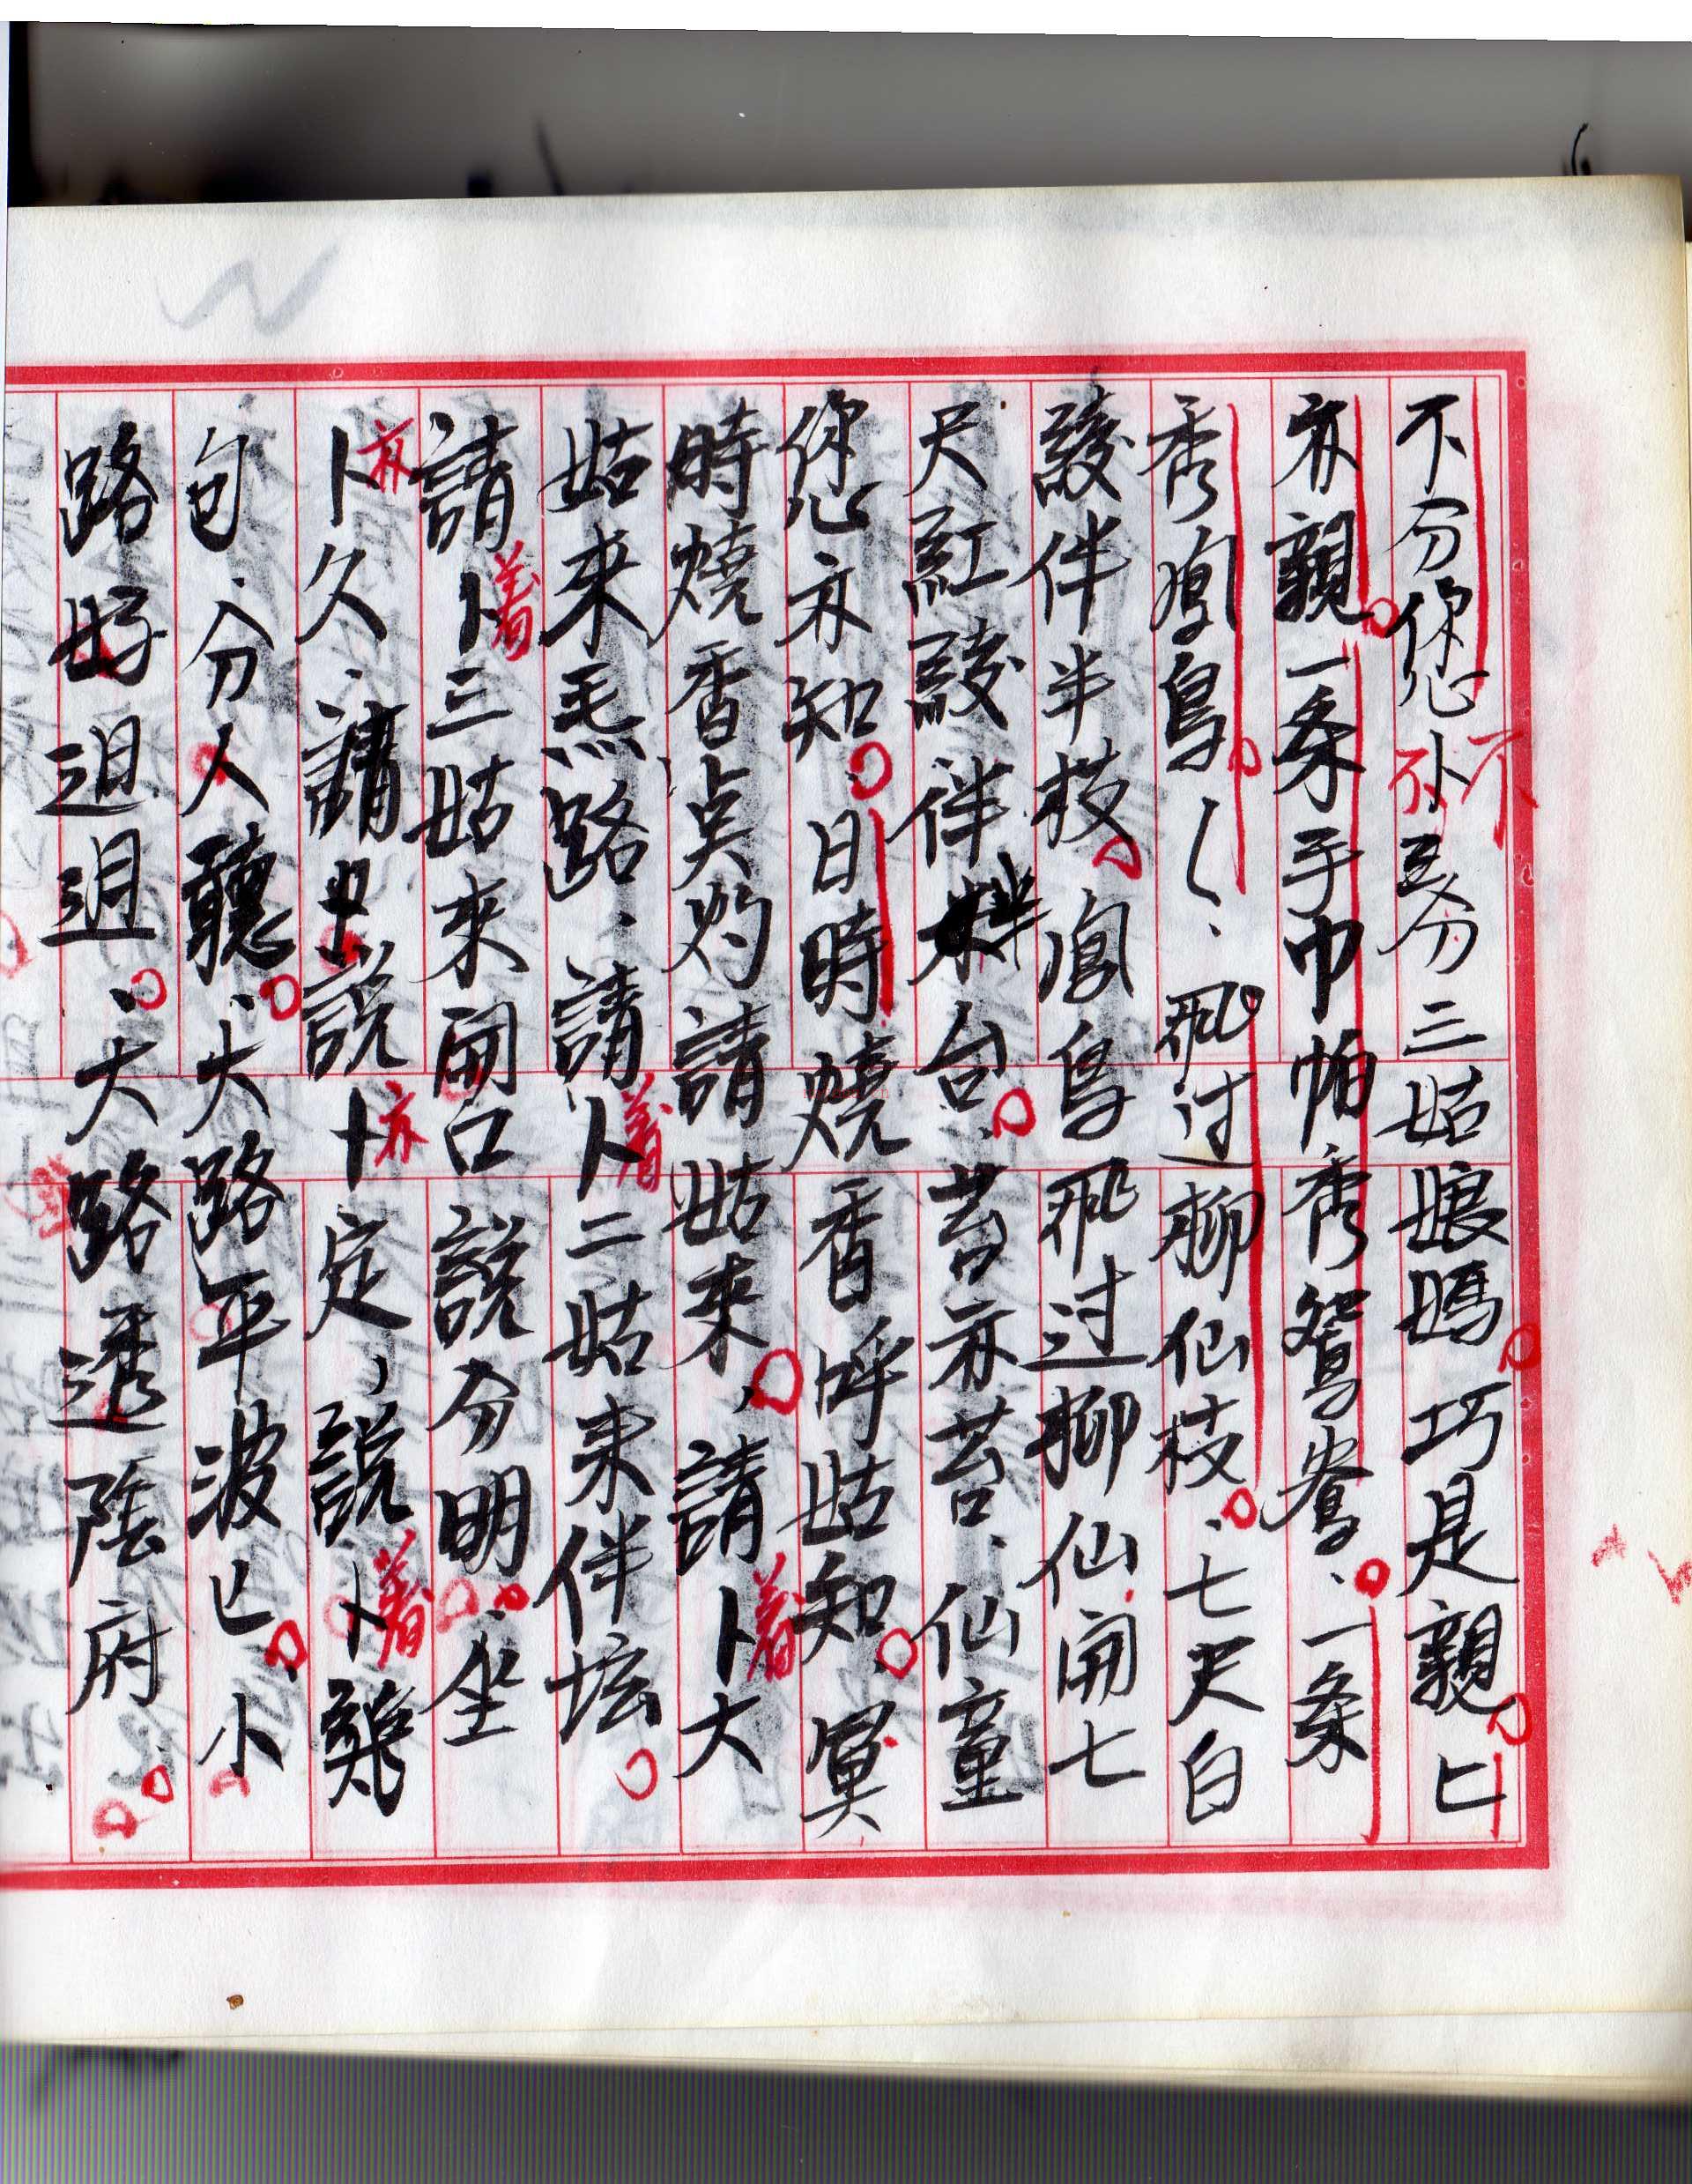 不分您卜昜分三姑娘媽巧是親匕
亦親一条手巾帕秀鴛鴦、一条
秀鳳鳥〱、飛过柳仙枝、七尺白
綾伴半枝鳳鳥飛过柳仙開七
尺紅綾伴台、苔亦苔、仙童
您亦知、日時燒香呼姑知、冥
時燒香点灼請姑來、請卜着大
姑來馬路、請卜着二姑来伴坛
請卜着三姑來開口說分明、坐
卜亦久、請說卜亦定、說卜着雞
句、分人聽、大路平波匕、小
路好迌迌、大路透陰府